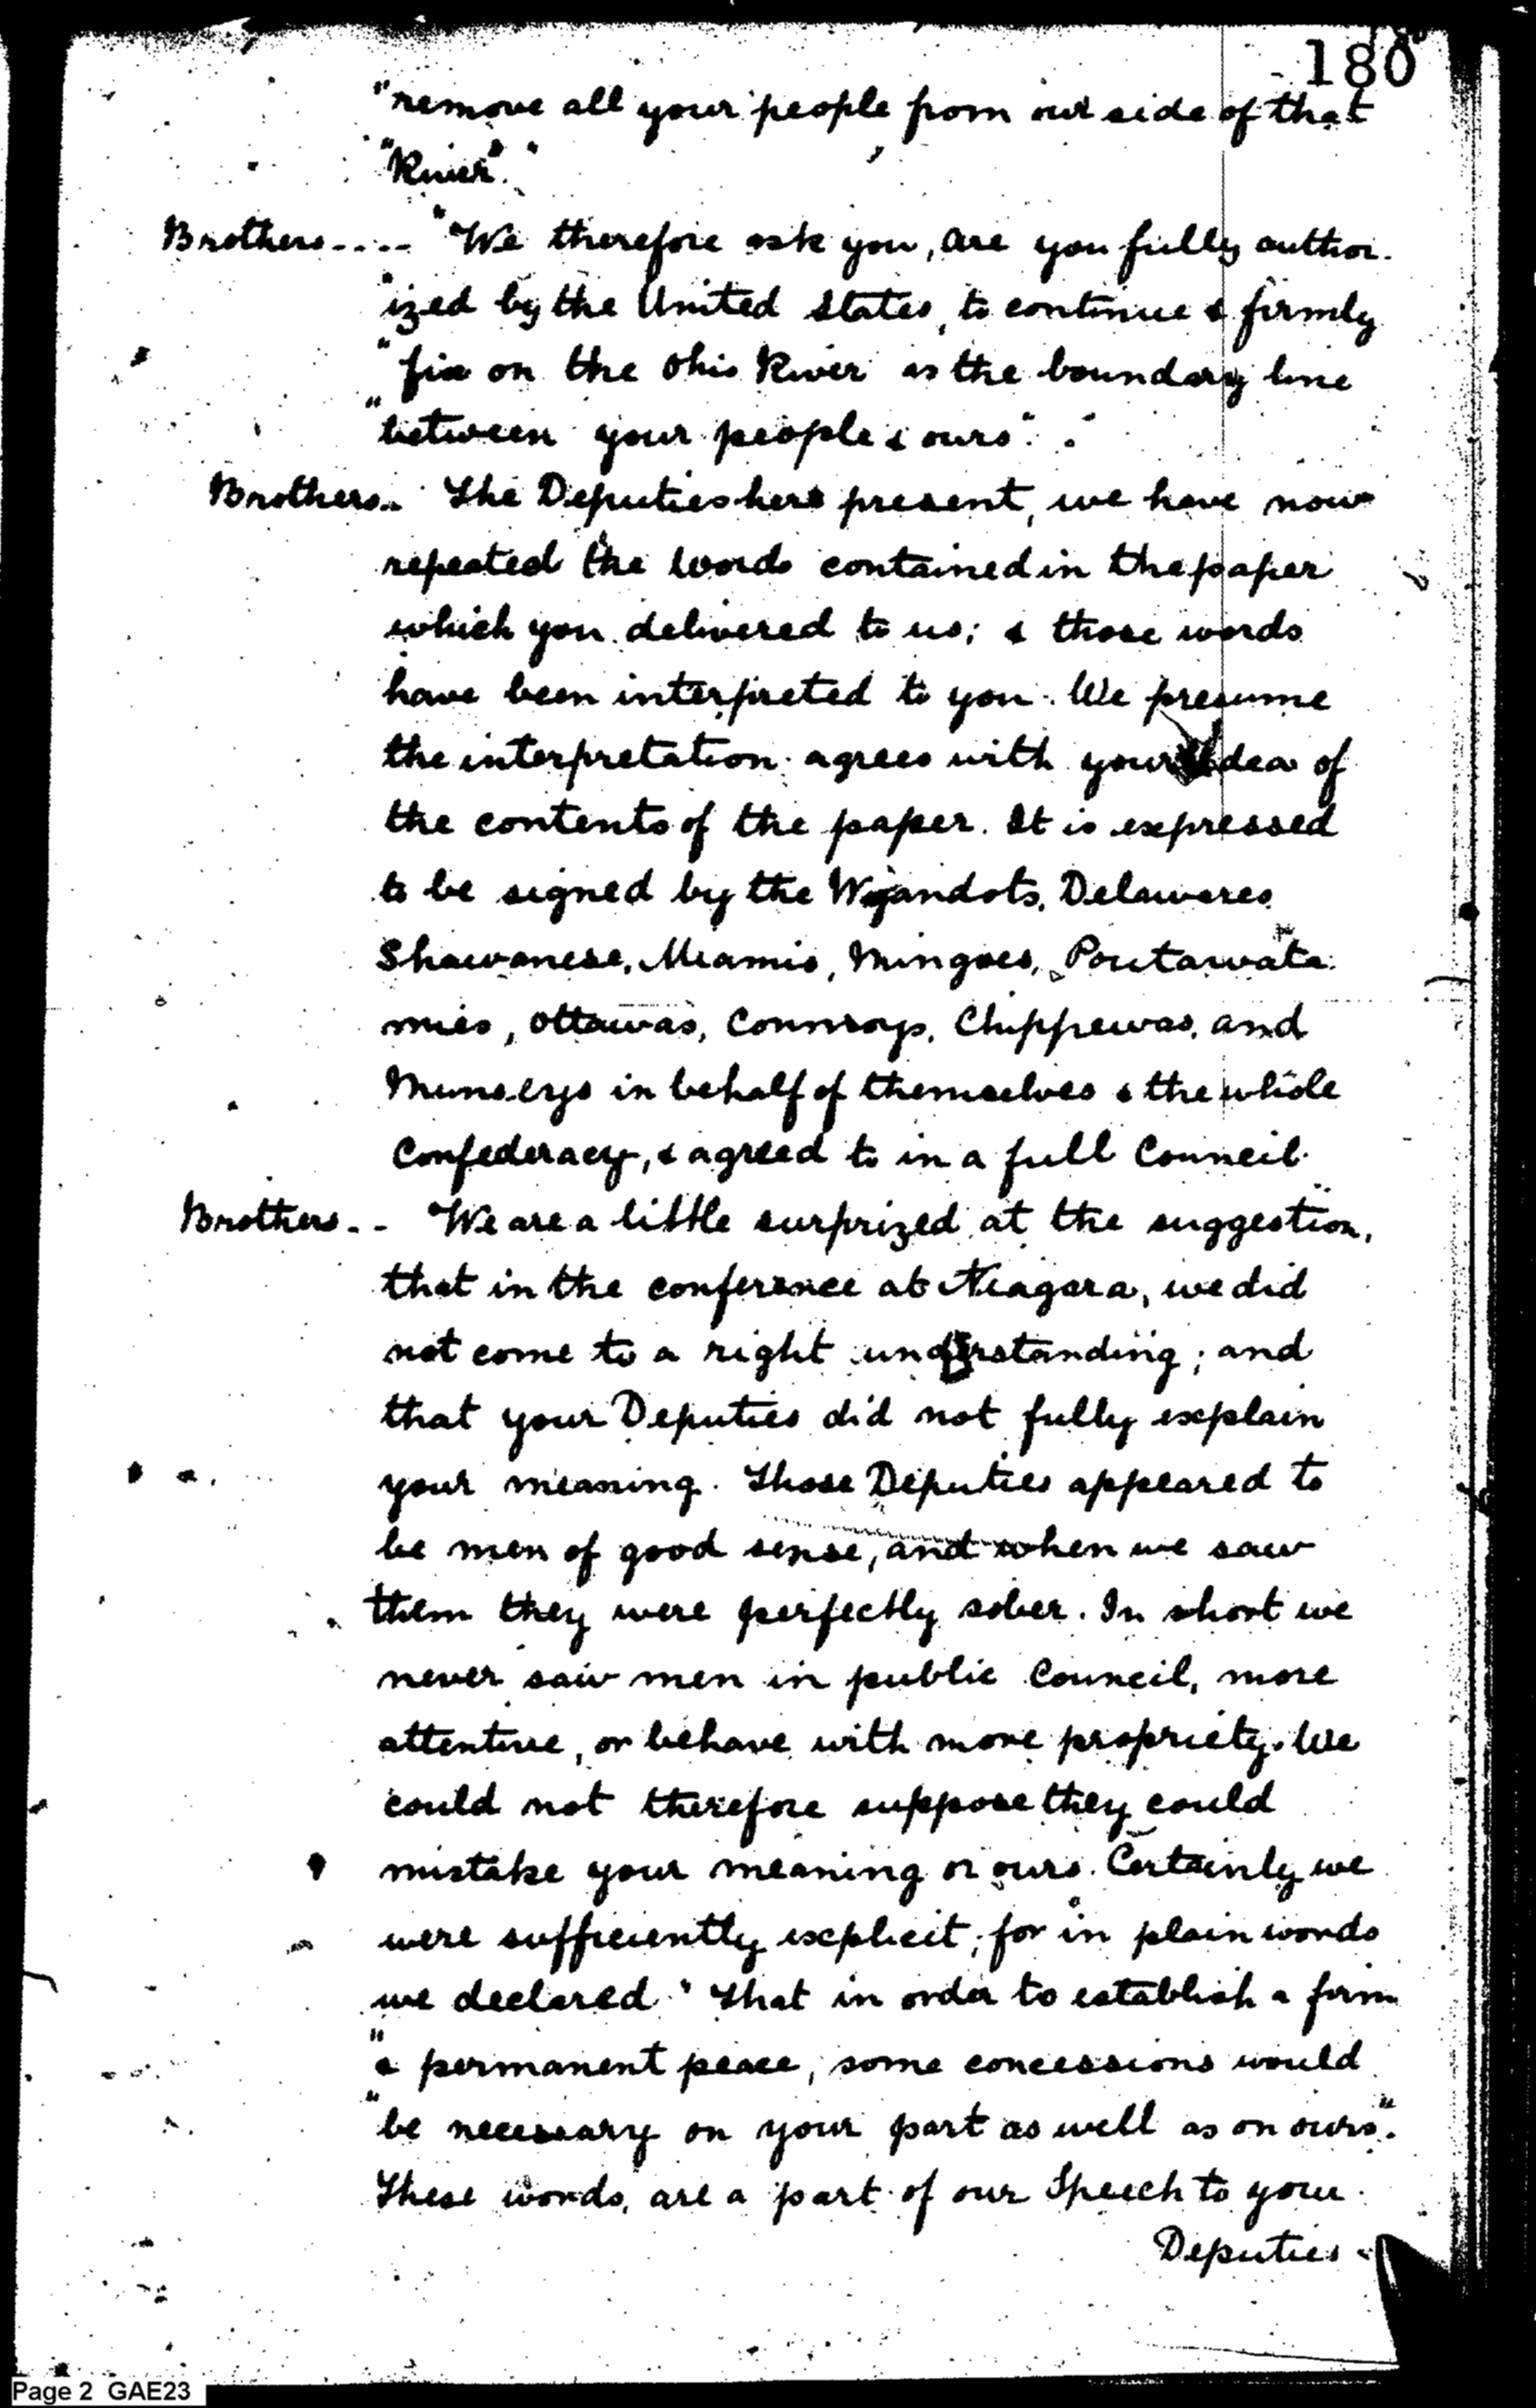 180
"remove all your people from our side of that
"River"."
Brothers.... "We therefore ask you, are you fully author-
"ized by the United States, to continue & firmly
"fix on the Ohio River as the boundary line
"between your people & ours".
Brothers.. The Deputies here present, we have now
repeated the words contained in the paper
which you delivered to us; & those words
have been interpreted to you. We presume
the interpretation agrees with your idea of
the contents of the paper. It is expressed
to be signed by the Wyandots, Delawares,
Shawanese, Miamis, Mingoes, Poutawata-
mies, Ottawas, Connoys, Chippewas, and
Munseys in behalf of themselves & the whole
Confederacy, & agreed to in a full Council.
Brothers.. We are a little surprized at the suggestion,
that in the conference at Niagara, we did
not come to a right understanding; and
that your Deputies did not fully explain
your meaning. Those Deputies appeared to
be men of good sense, and when we saw
them they were perfectly sober. In short we
never saw men in public Council, more
attentive, or behave with more propriety. We
could not therefore suppose they could
mistake your meaning or ours. Certainly we
were sufficiently explicit; for in plain words
we declared "that in order to establish a firm
"& permanent peace, some concessions would
"be necessary on your part as well as on ours".
These words, are a part of our Speech to your
Deputies
Page 2 GAE23